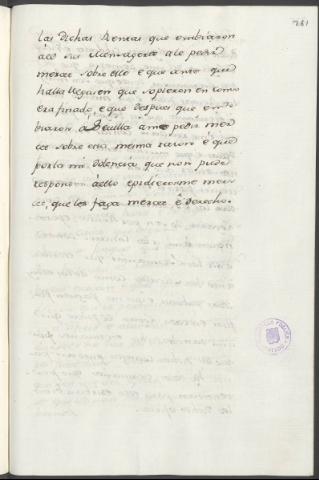 281
las dichas Rentas que embiaron
acá sus Mensageros a le pedir
merced sobre ello e que ante que
hallá lleguen que sopieron en como
era finado, e que despues que em
biaron a Sevilla á me pedir mer
ced sobre esta mesma razon é que
por la mi dolencia que non pude
responder á ello epidieronme mer
ced, que les faga merced é derecho.